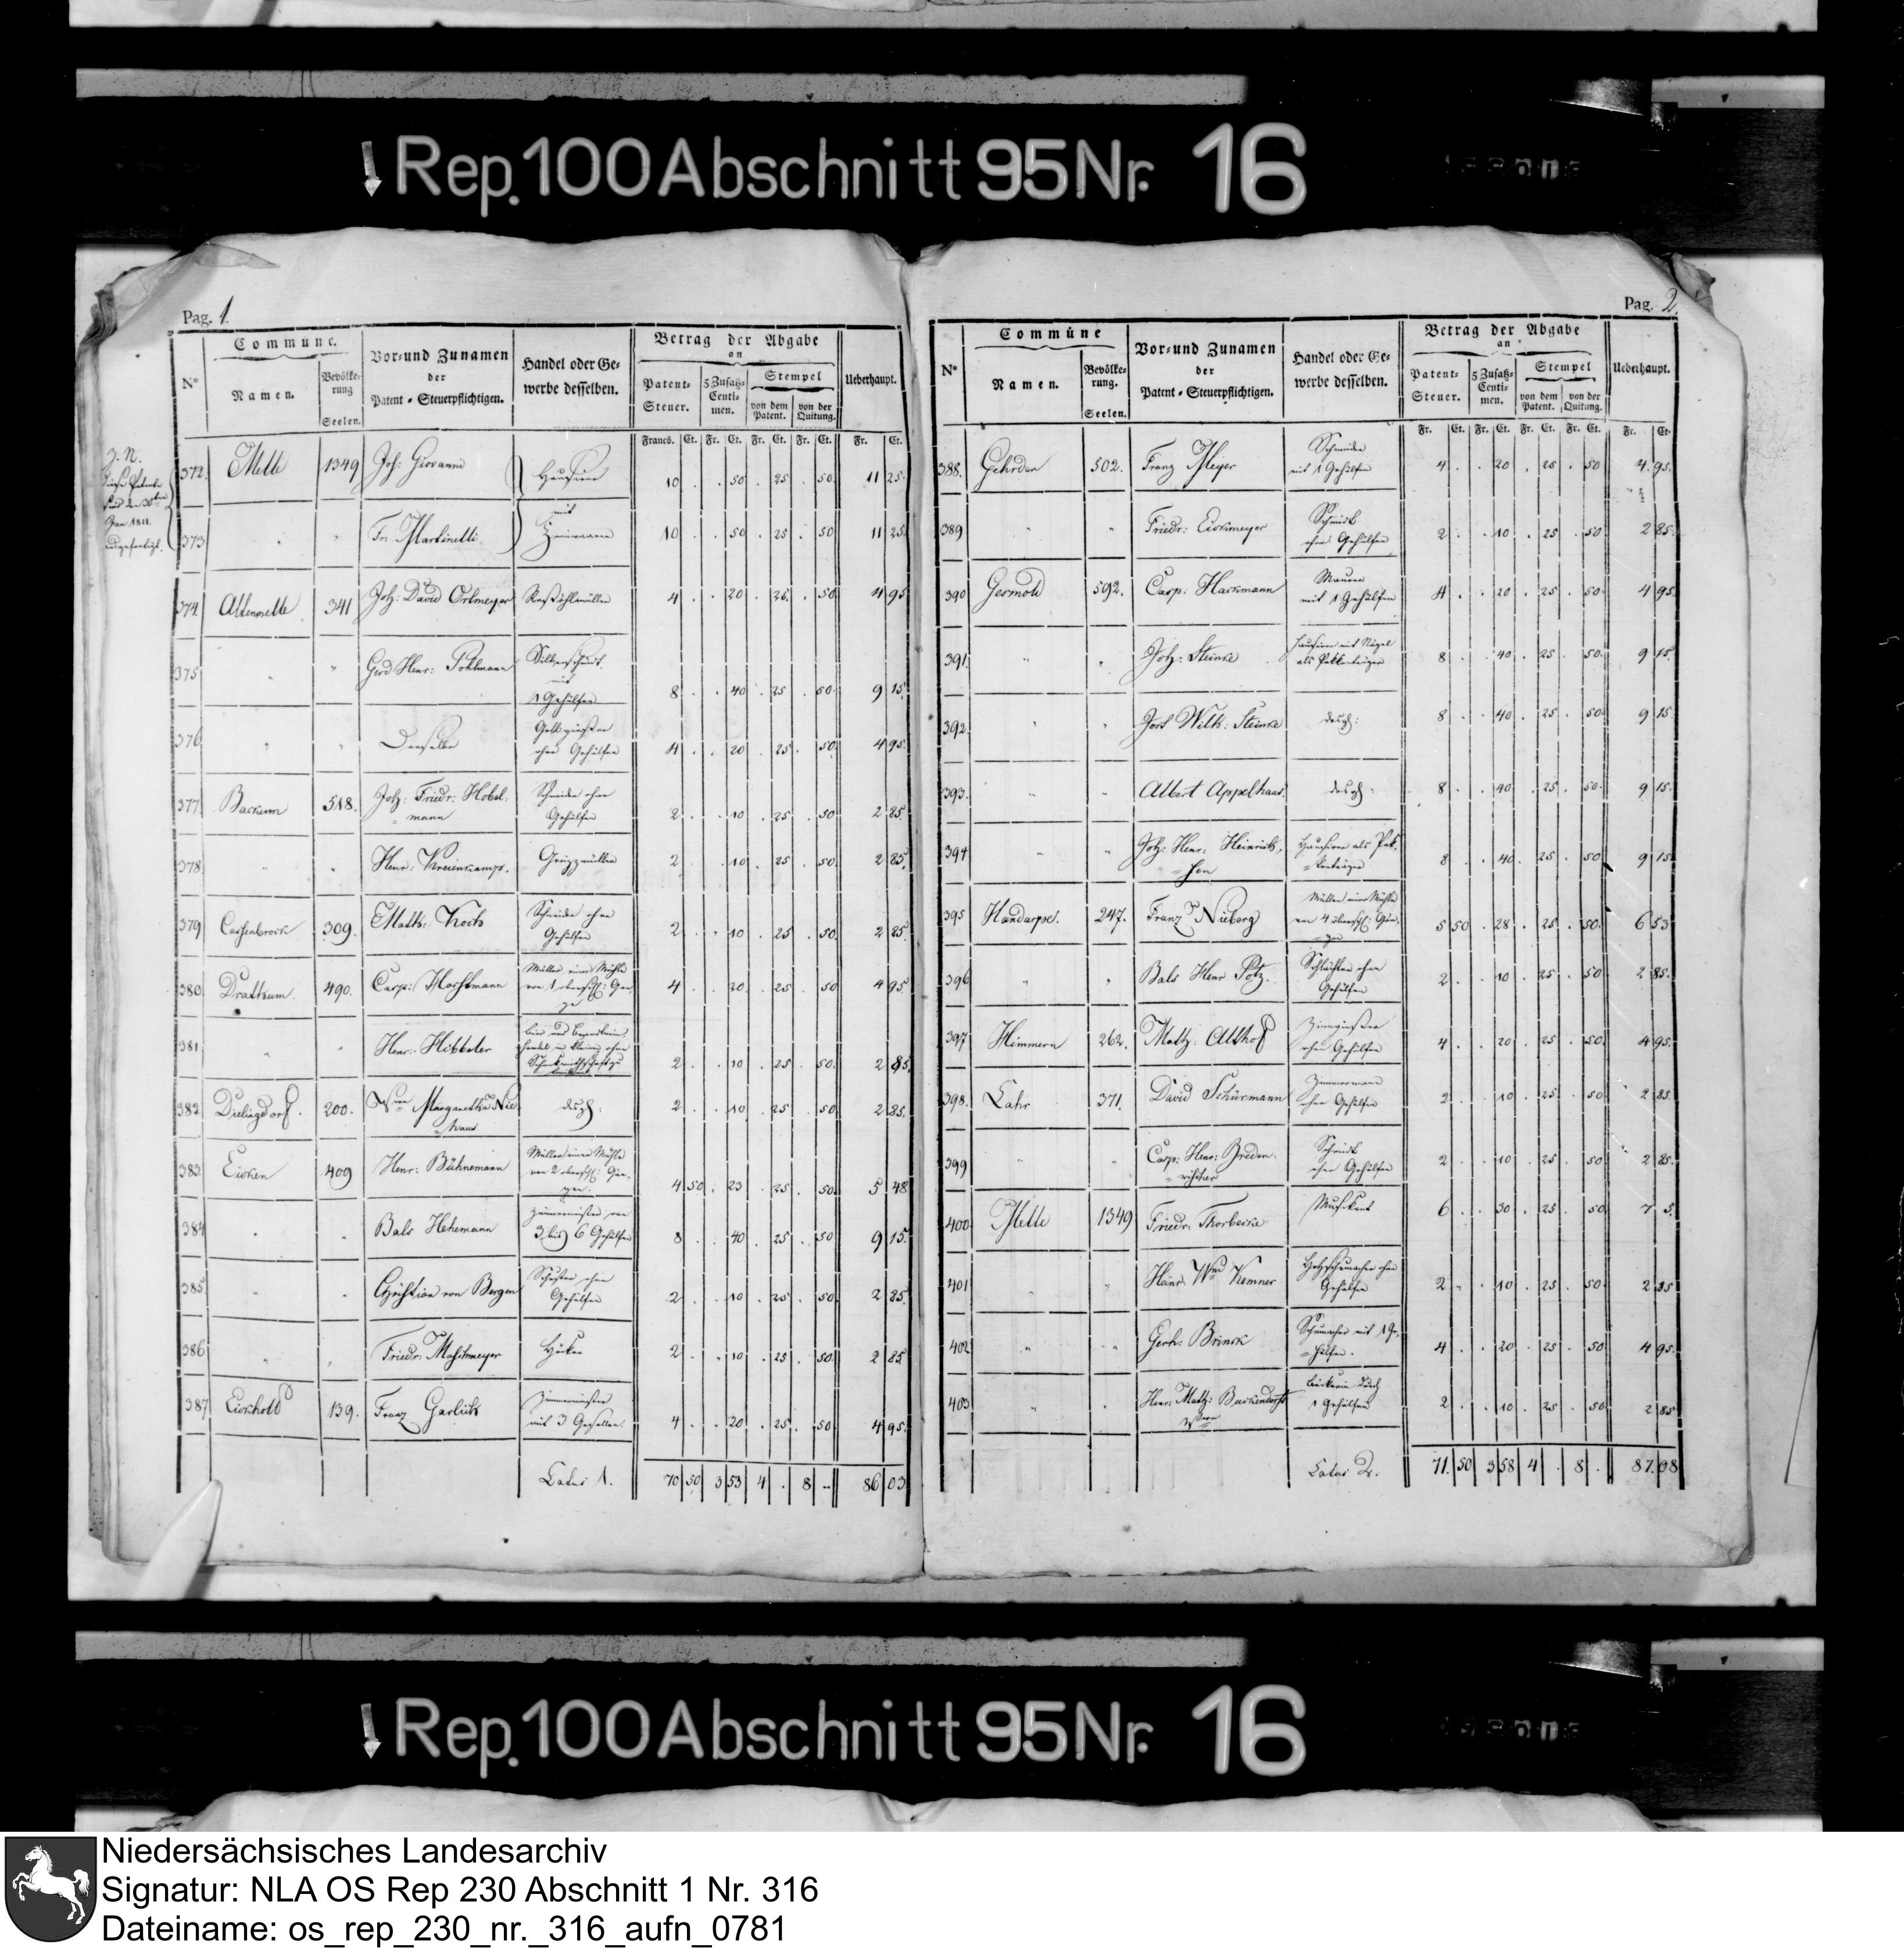 Rep. 100 Abschnitt 95 Nr. 16
Pag. 1.
N°
Commune.
Namen.
Bevölke-
rung
Seelen.
Vor- und Zunamen
der
Patent-Steuerpflichtigen.
Handel oder Ge-
werbe desselben.
Betrag der Abgabe
an
Patent-
Steuer.
5 Zusatz-
Centi-
men.
Stempel
von dem
Patent.
von der
Quitung.
Ueberhaupt.
Francs. Ct. Fr. Ct. Fr. Ct. Fr. Ct. Fr. Ct.
372. Melle 1349 Joh: Giovanni Hausirer 10 . . 50 . 25 . 50. 11 25.
mit
373 " " Fr: Martinelli Zinnwaaren 10 . . 50 . 25 . 50 11 25.
374 Altenmelle 341 Joh: David Ortmeyer Roßöhlmüller 4 . . 20 . 25. . 50 4 95
375 " " Gerd Henr: Pohlmann Silberschmidt
mit
1 Gehülfen 8 . . 40 . 25 . 50. 9 15.
376 " " Derselbe Gelbgießer
ohne Gehülfen 4 . . 20 . 25 . 50. 4 95.
377. Backum 518. Joh: Friedr: Hobel-
mann Schneider ohne
Gehülfen 2 . . 10 . 25 . 50 2 85.
378. " " Henr: Kreienkamp. Grüzmüller 2 . . 10 . 25 . 50. 2 85.
379 309. Math: Koch Schneider ohne
Gehülfen 2 . . 10 . 25 . 50. 2 85.
380. Drattum. 490. Casp: Horstmann Müller einer Mühle
von 1 oberschl: Gan-
ge 4 . . 20 . 25 . 50 4 95
381 " " Henr: Hibbeler
2 . . 10 . 25 . 50. 2 85.
382. Dielingdorf. 200. Margaretha Nie-
haus desgl. 2 . . 10 . 25 . 50 2 85.
383. Eicken 409 Henr: Bühnemann Müller einer Mühle
von 2 oberschl: Gän-
gen. 4 50 . 23 . 25 . 50. 5 48
384 " " Bals Hehemann Zimmermeister von
3 bis 6 Gehülfen 8 . . 40 . 25 . 50 9 15.
385. " " Christian von Bergen Schuster ohne
Gehülfen 2 . . 10 . 25 . 50. 2 85.
386 " " Friedr: Höker 2 . . 10 . 25 . 50. 2 85
387 Eickholt 139. Franz Garlich Zimmermeister
mit 3 Gesellen 4 . . 20 . 25 . 50 4 95.
Latus 1. 70 50 3 53 4 . 8 .. 86 03
Pag. 2.
N°
Commüne
Namen.
Bevölke-
rung.
Seelen.
Vor- und Zunamen
der
Patent-Steuerpflichtigen.
Handel oder Ge-
werbe desselben.
Betrag der Abgabe
an
Patent-
Steuer.
5 Zusatz-
Centi-
men.
Stempel
von dem
Patent.
von der
Quitung.
Ueberhaupt.
Fr. Ct. Fr. Ct. Fr. Ct. Fr. Ct. Fr. Ct.
388. Gehrden 502. Franz Meyer Schneider
mit 1 Gehülfen 4 . . 20 . 25 . 50 4. 95.
389 " " Friedr: Eickmeyer Schmidt
ohne Gehülfen 2 . . 10 . 25 . 50 2 85.
390 Gesmold 592. Casp: Hackmann Maurer
mit 1 Gehülfen 4 . . 20 . 25 . 50 4 95.
391. " " Joh: Steinke hausirer mit Nägel
als Pakkenträger 8 . . 40 . 25 . 50. 9 15.
392. " " Jost Wilh: Steinke desgl: 8 . . 40 . 25 . 50. 9 15
393. " " Albert Appelhans. desgl: 8 . . 40 . 25 . 50. 9 15.
394 " " Joh: Henr: Heinrich-
sen Hausirer als Pak-
kenträger 8 . . 40 . 25 . 50 9 15
395 Handarpe. 247. Franz Nieberg Müller einer Mühle
von 4 oberschl: Gän-
ge 5 50 . 28 . 25 . 50. 6 53
396 " " Bals Henr Potz. Schlächter ohne
Gehülfen 2 . . 10 . 25 . 50 2 85.
397 Himmern 262. Matz: Althof Zinngießer
ohne Gehülfen 4 . . 20 . 25 . 50. 4 95.
398. Lahr 371. David Schürmann Zimmermann
ohne Gehülfen 2 . . 10 . 25 . 50. 2 85.
399 " " Casp: Henr: Breden- Schmidt
ohne Gehülfen 2 . . 10 . 25 . 50 2 85.
400. Melle 1349 Friedr: Thorbecke Musikant 6 . . 30 . 25 . 50 7 5.
401 " " Heinr: Wm Kemner Holzschumacher ohne
Gehülfen 2 . . 10 . 25 . 50. 2 85
402 " " Gerh: Brinck Schumacher mit 1 Ge-
hülfen. 4 . . 20 . 25 . 50 4 95.
403 " " Henr: Matz:
1 Gehülfen 2 . . 10 . 25 . 50 2 85
Latus 2. 71. 50 3 58 4 . 8 . 87. 08
Rep. 100 Abschnitt 95 Nr. 16
Niedersächsisches Landesarchiv
Signatur: NLA OS Rep 230 Abschnitt 1 Nr. 316
Dateiname: os_rep_230_nr._316_aufn_0781